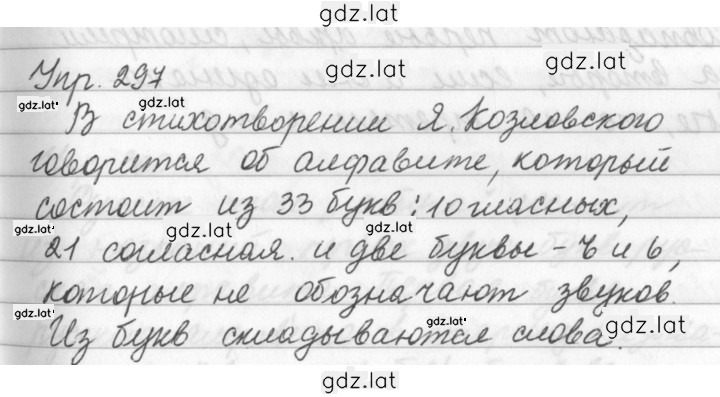 gdz.lat
gdz.lat gdz.lat
Упр. 297
gdz.lat gdz.lat
В стихотворении Я. Козловского
говорится об алфавите, который
состоит из 33 букв: 10 гласных,
gdz.lat gdz.lat gdz.lat
21 согласная. и две буквы - ъ и ь,
которые не обозначают звуков.
gdz.lat gdz.lat gdz.lat
Из букв складываются слова.
gdz.lat